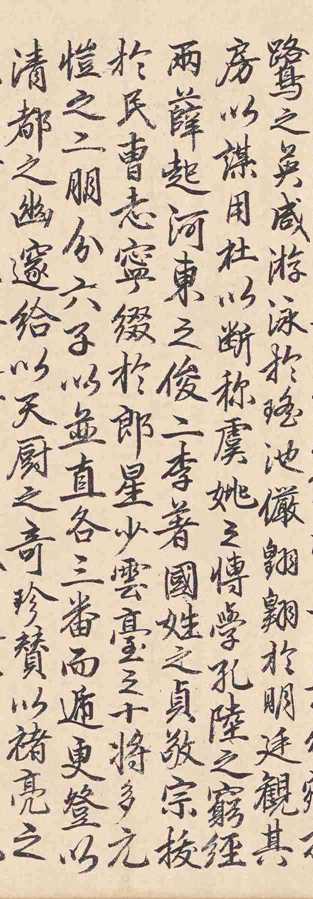 鷺之英咸游泳於瑤池儼翱翔於明廷觀其
房以謀用杜以断称虞姚之博學孔陸之窮經
兩薛起河東之俊二李著國姓之貞敬宗拔
於民曹志寧綴於郎星少雲臺之十将多元
愷之二朋分六子以並直各三番而遞更登以
清都之幽邃給以天厨之奇珍賛以褚亮之